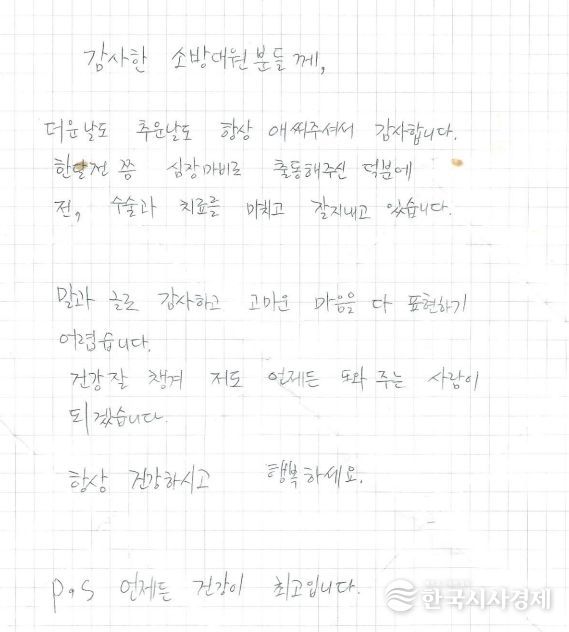 감사한 소방대원분들께,
더운날도 추운날도 항상 애써주셔서 감사합니다.
한달전 쯤 심장마비로 출동해주신 덕분에
전, 수술과 치료를 마치고 잘지내고 있습니다.
말과 글로 감사하고 고마운 마음을 다 표현하기
어렵습니다.
건강 잘 챙겨 저도 언제든 도와 주는 사람이
되겠습니다.
항상 건강하시고 행복하세요.
p.s 언제든 건강이 최고입니다.
한국시사경제